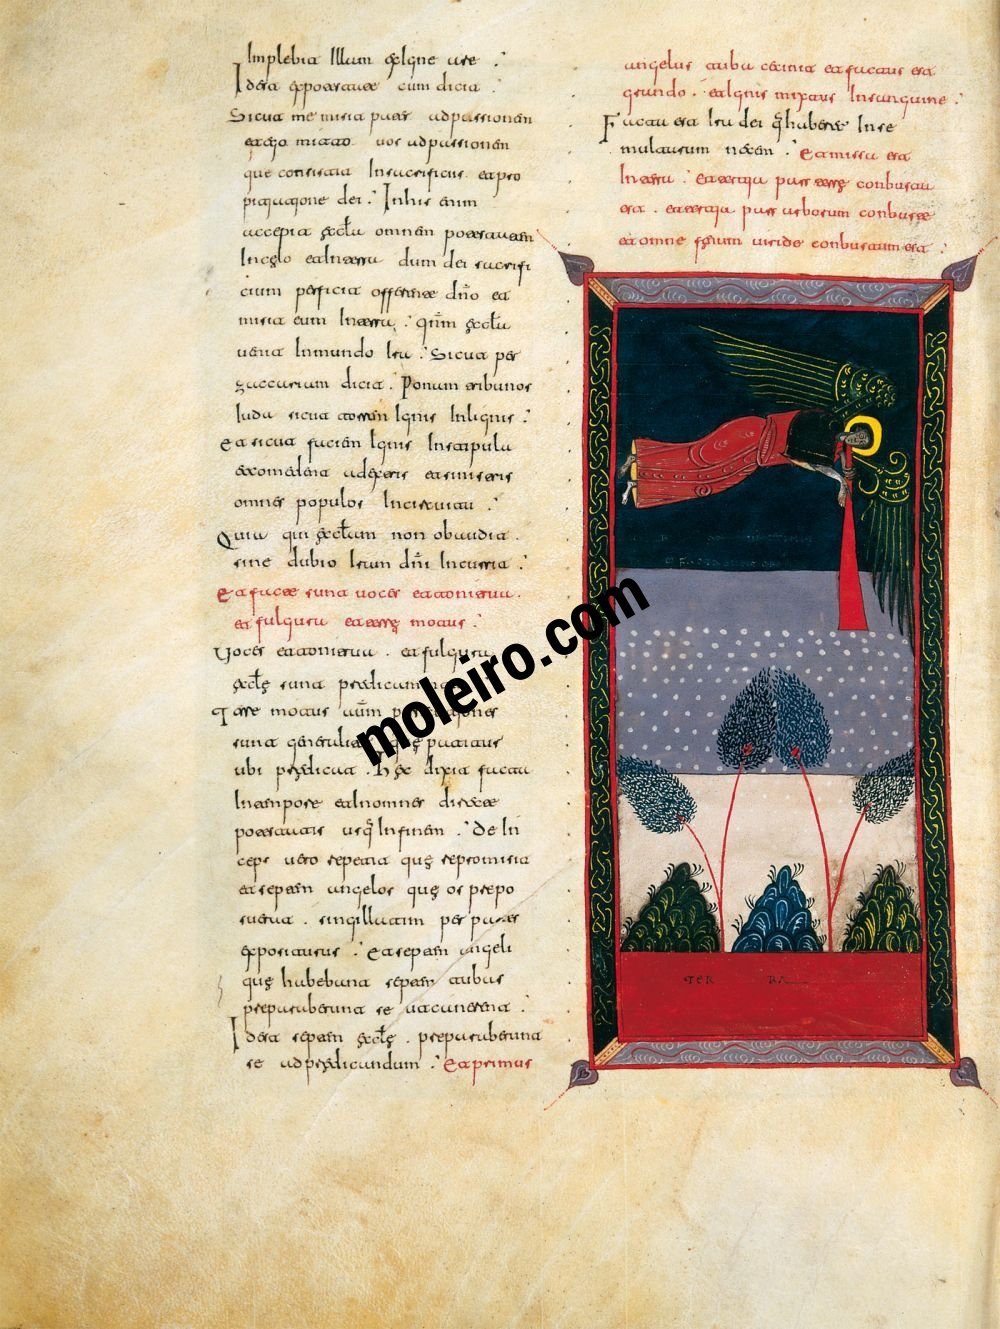 Implebit Illum ex Igne are :
Id est ex potestate cum dicit :
Sicut me misit pater ad passionem
et ego mitto vos ad passionem
que consistit In sacrificiis et pro
pitiatione dei : In his enim
accepit eccla omnem potestatem
In celo et In terra dum dei sacrifi
cium perficit offerre dno et
misit eum In terra : Qnm eccla
venit In mundo : Sicut per
zaccarium dicit : Ponam tribunos
Iuda sicut torrem Ignis In lignis :
Et sicut faciem Ignis In stipula
et comedent ad dexteris et a sinistris
omnes populos In circuitu :
Quia qui ecclam non obaudit .
sine dubio Iram dni Incurrit :
Et facte sunt voces et tonitrua .
et fulgura et terre motus :
Voces et tonitrua . et fulgura
eccle sunt
Terre motus aum
sunt que patitur
ubi predicat . Hec dixit
In tempore et In omnes
usq In finem : De In
vero repetit que repromisit
et septem angelos que os prepo
suerat . singillatim per partes
: Et septem angeli
que habebant septem tubas
preparaberunt se ut canerent :
Id est septem eccle . preparaberunt
se ad predicandum : Et primus
angelus tuba cecinit et factus est
grando . et Ignis mixtus In sanguine :
Facta est Ira dei q haberet In se
multarum necem : Et missa est
In terra : et tertia pars terre conbusta
est . et tertia pars arborum conbuste
et omne fenum viride conbustum est :
TERRA
moleiro.com